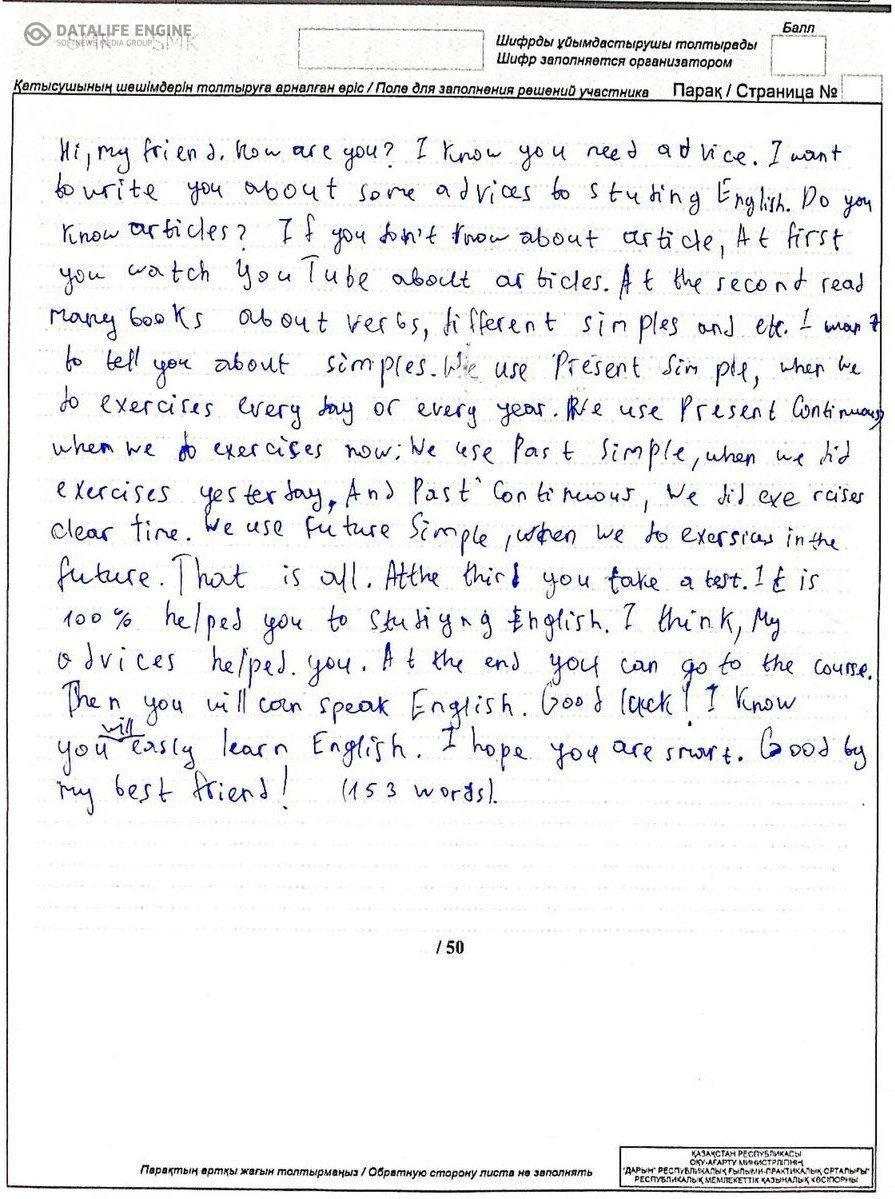 DATALIFE ENGINE
SOFTNEWS MEDIA GROUP
Балл
Шифрды ұйымдастырушы толтырады
Шифр заполняется организатором
Қатысушының шешімдерін толтыруға арналған өріс / Поле для заполнения решений участника Парақ / Страница №
Hi, my friend. How are you? I know you need advice. I want
to write you about some advices to studing English. Do you
know articles? If you don't know about article, At first
you watch YouTube about articles. At the second read
many books about verbs, different simples and etc. I want
to tell you about simples. We use Present Simple, when we
do exercises every day or every year. We use Present Continuous
when we do exercises now. We use Past Simple, when we did
exercises yesterday, And Past Continuous, we did exercises
clear time. We use Future Simple, when we do exersices in the
future. That is all. At the third you take a test. It is
100% helped you to studiyng English. I think, My
advices helped you. At the end you can go to the course.
Then you will can speak English. Good luck! I know
you will easly learn English. I hope you are smart. Good by
my best friend! (153 words).
/ 50
Парақтың артқы жағын толтырмаңыз / Обратную сторону листа не заполнять
ҚАЗАҚСТАН РЕСПУБЛИКАСЫ
ОҚУ-АҒАРТУ МИНИСТРЛІГІНІҢ
"ДАРЫН" РЕСПУБЛИКАЛЫҚ ҒЫЛЫМИ-ПРАКТИКАЛЫҚ ОРТАЛЫҒЫ"
РЕСПУБЛИКАЛЫҚ МЕМЛЕКЕТТІК ҚАЗЫНАЛЫҚ КӘСІПОРНЫ